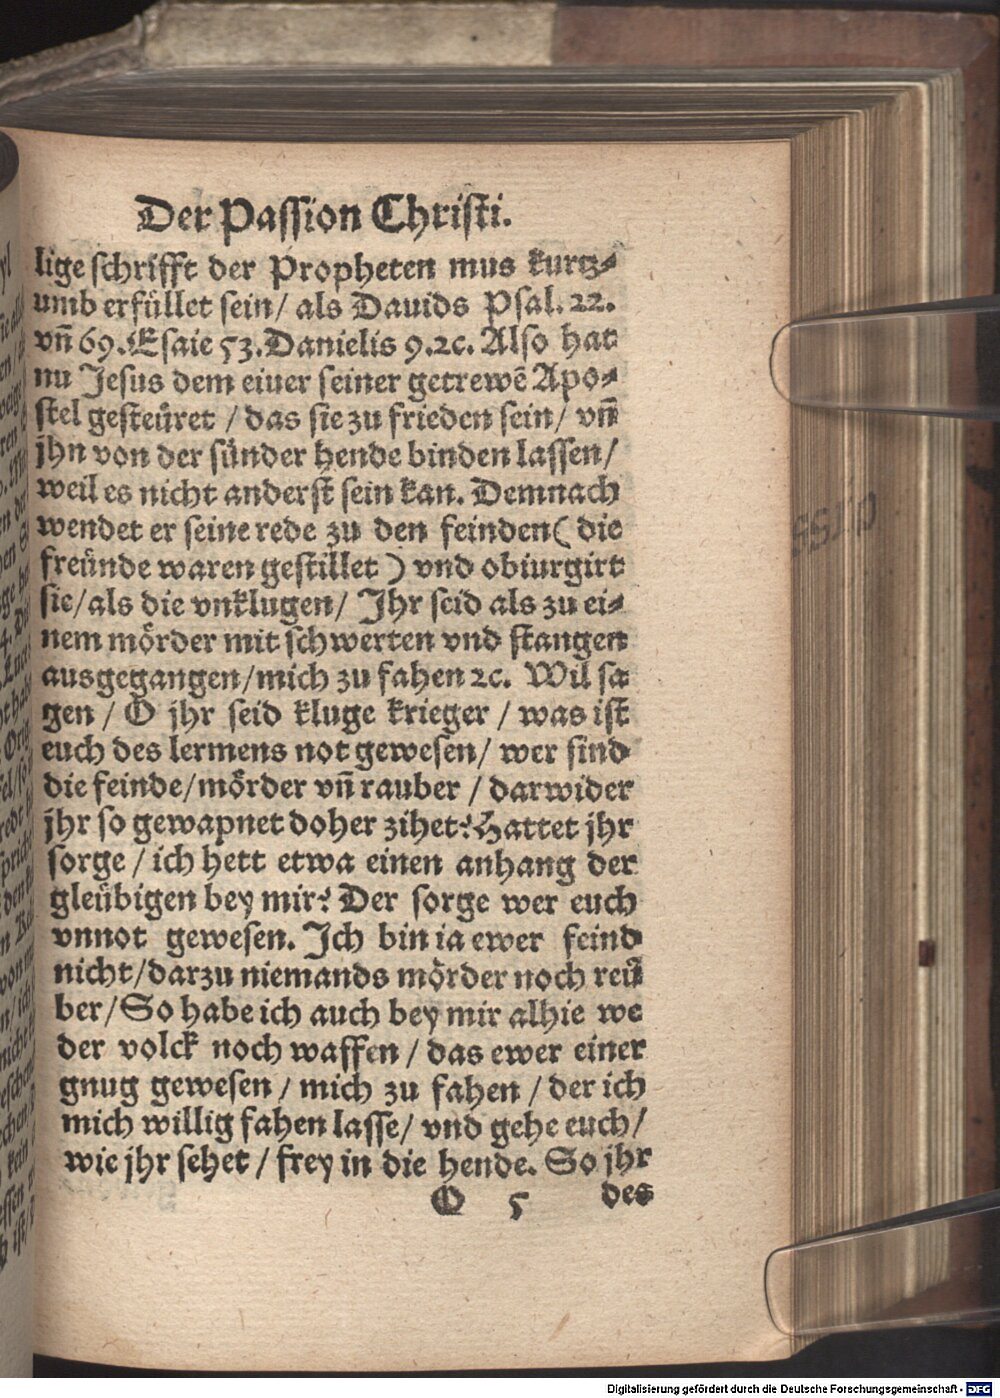 Der Passion Christi.
lige schrifft der Propheten mus kurtz⸗
umb erfüllet sein/ als Dauids Psal. 22.
vn̄ 69. Esaie 53. Danielis 9. ꝛc. Also hat
nu Jesus dem eiuer seiner getrewē Apo⸗
stel gesteüret / das sie zu frieden sein/ vn̄
jhn von der sünder hende binden lassen/
weil es nicht anderst sein kan. Demnach
wendet er seine rede zu den feinden (die
freünde waren gestillet ) vnd obiurgirt
sie/als die vnklugen/ Jhr seid als zu ei⸗
nem mörder mit schwerten vnd stangen
ausgegangen/mich zu fahen ꝛc. Wil sa
gen / O jhr seid kluge krieger / was ist
euch des lermens not gewesen/ wer sind
die feinde/mörder vn̄ rauber / darwider
jhr so gewapnet doher zihet? Hattet jhr
sorge / ich hett etwa einen anhang der
gleübigen bey mir? Der sorge wer euch
vnnot gewesen. Ich bin ia ewer feind
nicht/darzu niemands mörder noch reü
ber/So habe ich auch bey mir alhie we
der volck noch waffen / das ewer einer
gnug gewesen / mich zu fahen / der ich
mich willig fahen lasse/ vnd gehe euch/
wie jhr sehet / frey in die hende. So jhr
O 5 des
Digitalisierung gefördert durch die Deutsche Forschungsgemeinschaft - DFG